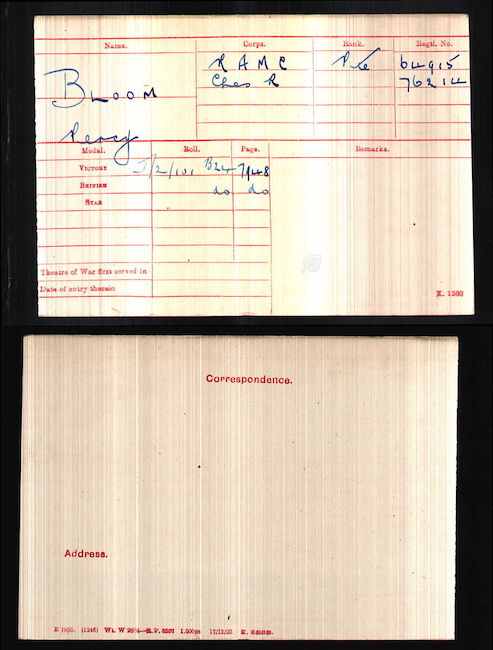 Name. Corps. Rank. Regtl. No.
BLOOM R A M C Pte 64915
Percy Ches R 76214
Medal. Roll. Page. Remarks.
VICTORY J/2/101 B24 7948
BRITISH do do
STAR
Theatre of War first served in
Date of entry therein
K. 1380
Correspondence.
Address.
E 1995. (1246) Wt. W 5261 1,500gs 17/12/20 E. 6689.